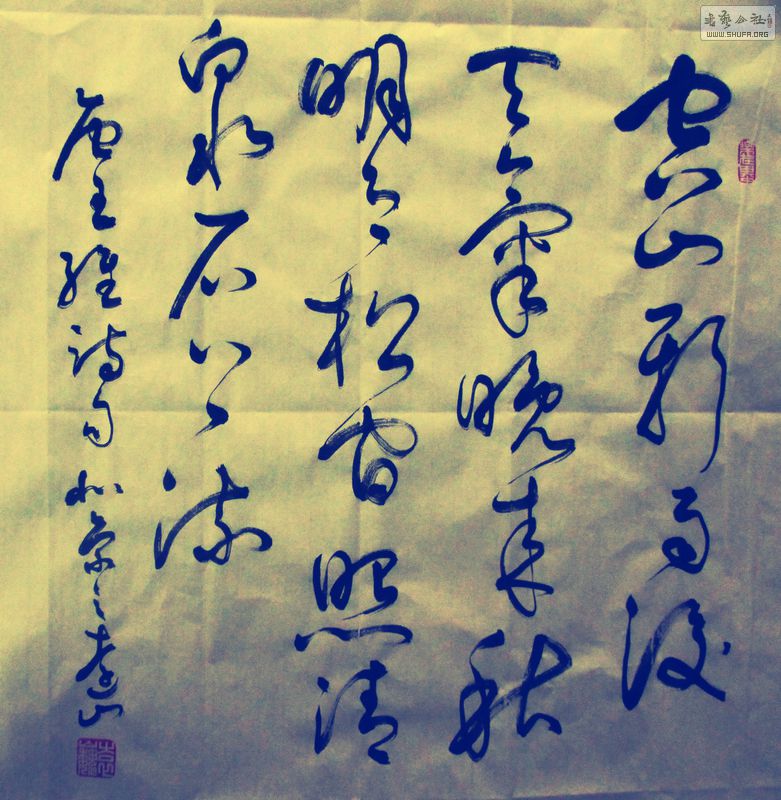 空山新雨後
天氣晚來秋
明月松間照清
泉石上流
唐王維詩句
書藝公社
WWW.SHUFA.ORG